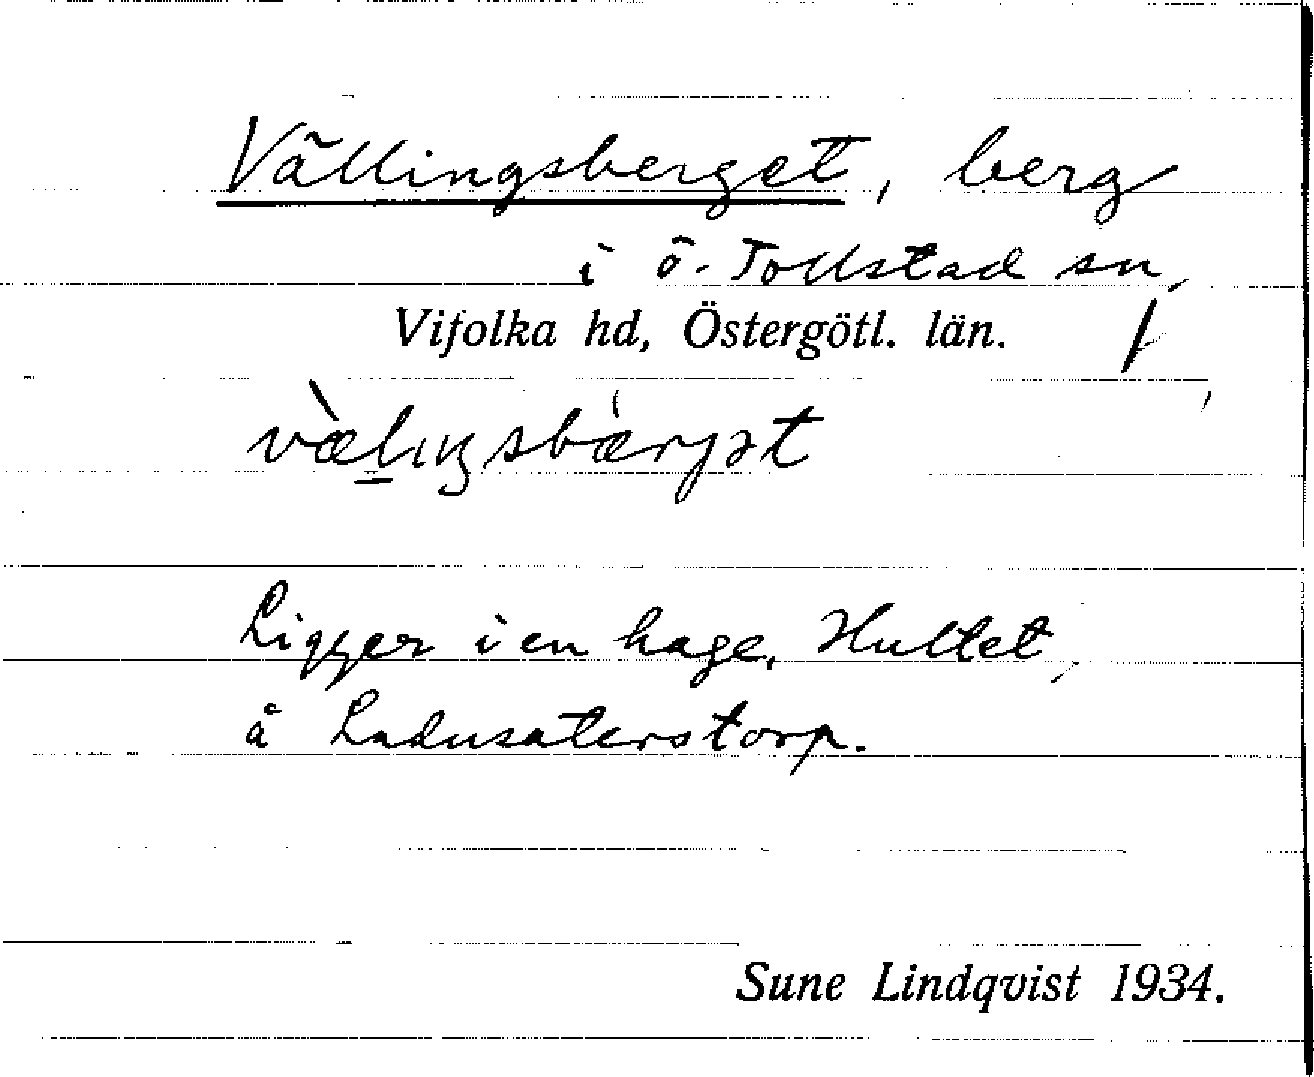 Vällingsberget, berg
i Ö. Tollstad sn,
Vifolka hd, Östergötl. län.
væ̀lıŋsbæ̀rjət
Ligger i en hage, Hultet,
å Ladusäterstorp.
Sune Lindqvist 1934.